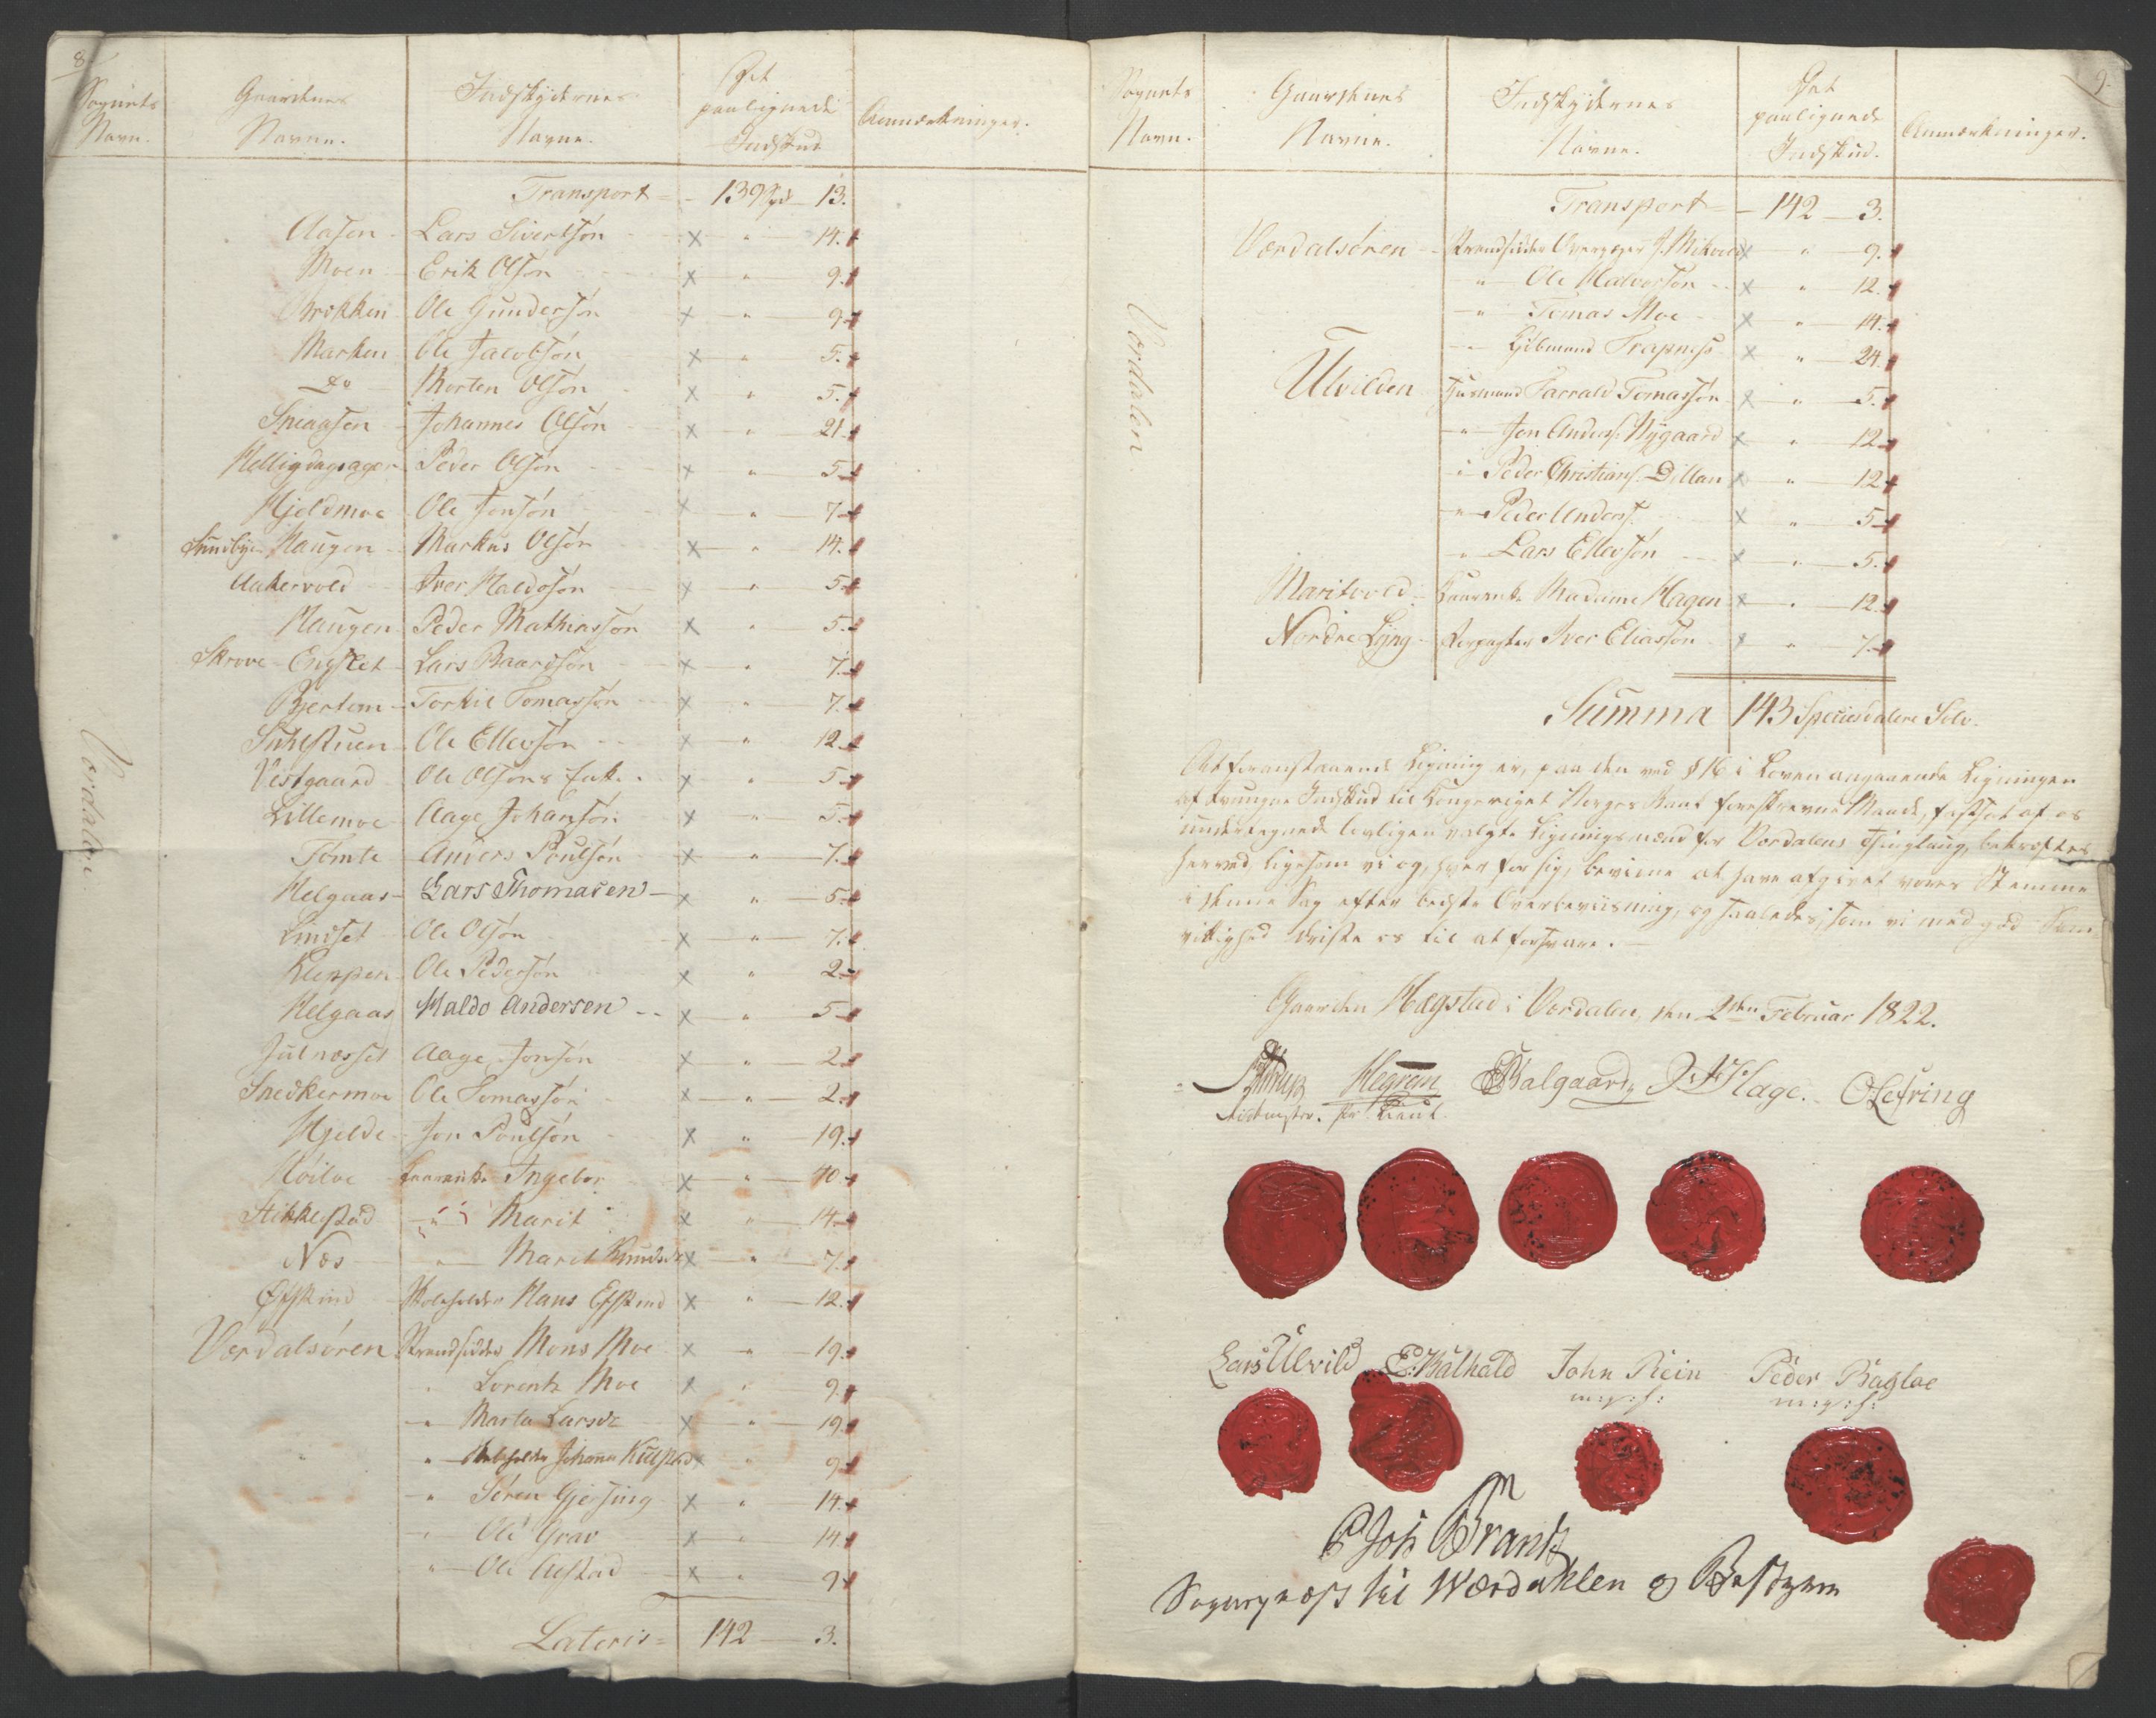 8
Sognets Navn.
Gaardenes Navne.
Indskydernes Navne.
Det paalignede Indskud
Anmærkninger.
Værdalen.
Transport = - 139 Spd - 13.
Aasen - Lars Sivertsøn x " 14.
Moen - Erik Olsøn x " 9.
Ole Gundersøn x " 9
Marken - Ole Jacobsøn x " 5.
Do - Morten Olsøn x " 5.
Sneaasen - Johannes Olsøn x " 21
Helligdagsager - Peder Olsøn x " 5
Hjeldmoe - Ole Jonsøn x " 7
Sundbye Haugen - Markus Olsøn x " 14.
Aakervold - Iver Haldosøn x " 5
Haugen - Peder Mathiassøn x " 5
Skrove - Englet - Lars Baardsøn x " 7.
Bjertem - Torkil Tomassøn x " 7.
Ole Ellevsøn x " 12
Vestgaard - Ole Olsøns Enke x " 5
Lillemoe - Aage Johansøn x " 5
Tømte - Anders Poulsøn x " 7.
Helgaas - Lars Thomasen - x " 5
Lindset - Ole Olsøn x " 7.
Kleppen - Ole Pedersøn x " 2
Helgaas Haldo Andersen - x " 5
Julnesset Aage Jonsøn x " 2
Snedkermoe Ole Tomassøn x " 2
Hjelde - Jon Poulsøn x " 19.
Høiloe - Ingebor x " 40
Stikkelstad " Marit x " 14
Næs " Marit Knudsdr x " 7.
Eskind - Skoleholder Hans Eskind x " 12.
Værdalsøren Strandsidder Mons Moe x " 19.
" Lorentz Moe x " 9.
" Marta Larsdr x " 19
" Skoleholder Johannes x " 9
" Søren Gjersing x " 14
" Ole Grav x " 14
" Ole x " 9
Lateris = 142 - 3.
9.
Sognets Navn.
Gaardenes Navne.
Indskydernes Navne.
Det paalignede Indskud.
Anmærkninger.
Værdalen.
Transport = - 142 - 3.
Værdalsøren - Strandsidder J. x " 9.
" Ole Halvorsøn x " 12.
" Tomas Moe x " 14.
" Trapness x " 24.
Ulvilden Huusmand Tarrald Tomassøn x " 5.
" Jon Anders. Nygaard x " 12
" Peder Christians. Dillan x " 12
" Peder Anders. x " 5
" Lars Ellevsøn x " 5.
Maritvold - Madame Hagen x " 12
Nordre Lyng - Forpagter Iver Eliassøn x " 7.
Summa 143 Speciesdalere Sølv.
At foranstaaende Ligning er, paa den ved § 16 i Loven angaaende Ligningen
af tvungne Indskud til Kongeriget Norges Bank foreskrevne Maade, fastsat af os
undertegnede lovligen valgte Ligningsmænd for Værdalens Thinglaug, bekræftes
herved, ligesom vi og, hver for sig, bevidne at have afgivet vores Stemme
i denne Sag efter bedste Overbeviisning, og saaledes, som vi med god Sam-
vittighed driste os til at forsvare. -
Gaarden Hægstad i Værdalen, den 2den Februar 1822.
Hegren Balgaard Hage. O Lefring
Lars Ulvild John Rein Peder Bagloe
m: p: f: m: p: f:
Brantz
Sognepræst til Wærdahlen og